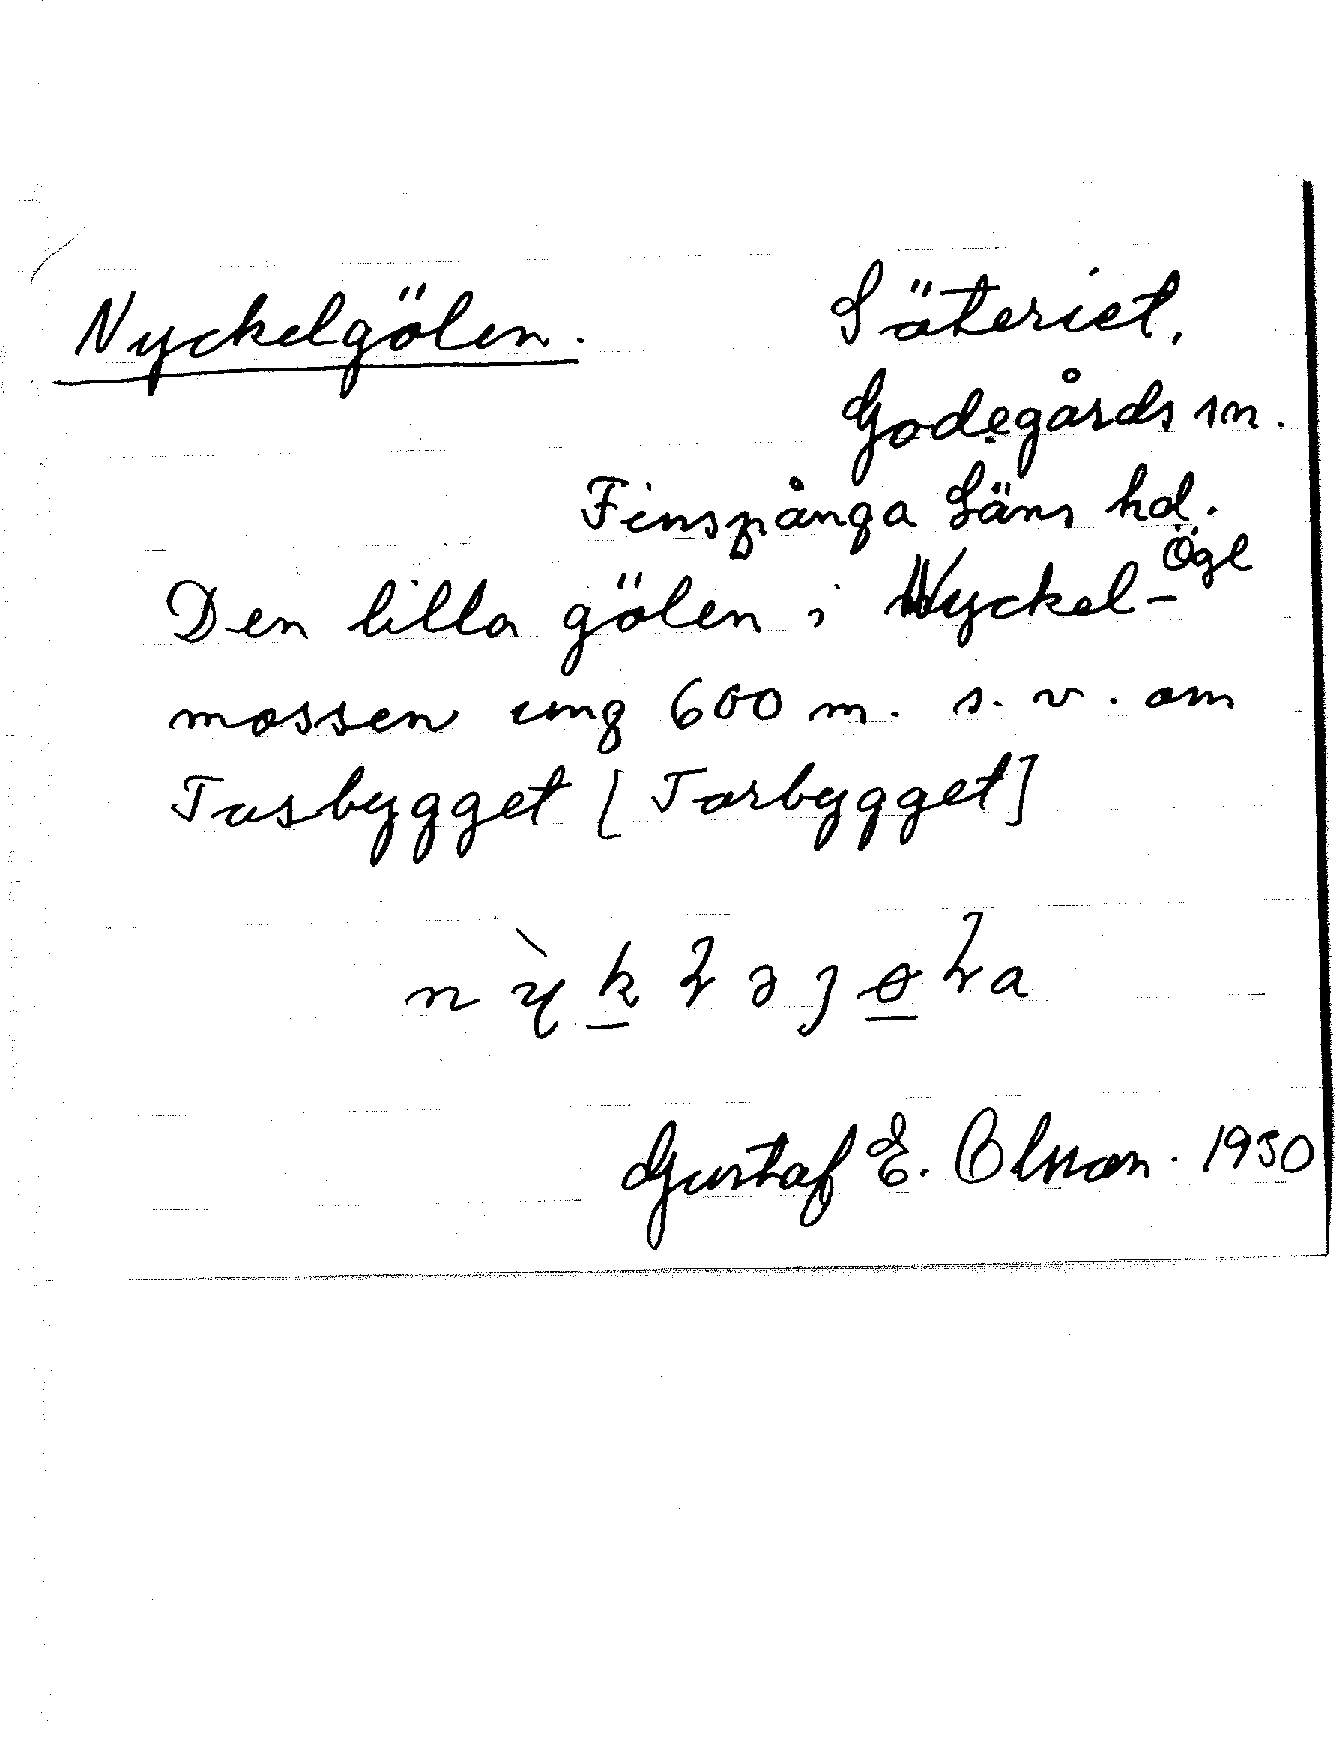 Nyckelgölen.
Säteriet,
Godegårds sn.
Finspånga Läns hd.
Ögl
Den lilla gölen i Nyckel-
mossen ung 600 m. s.v. om
Tusbygget [Torbygget]
Gustaf E. Olsson. 1930